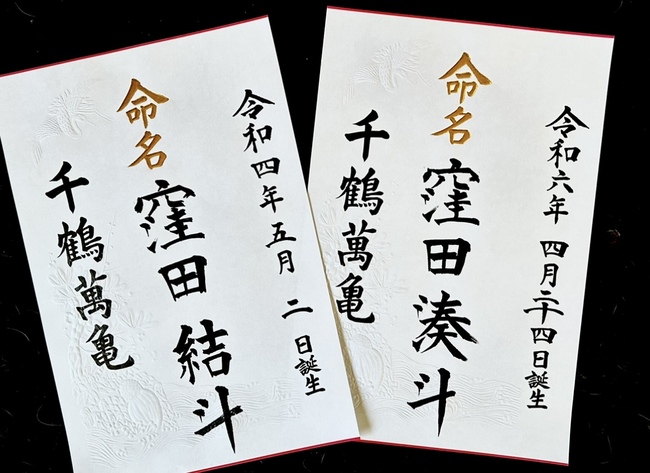 令和四年 五月 二日誕生
命名
窪田 結斗
千鶴萬亀
令和六年 四月二十四日誕生
命名
窪田 湊斗
千鶴萬亀